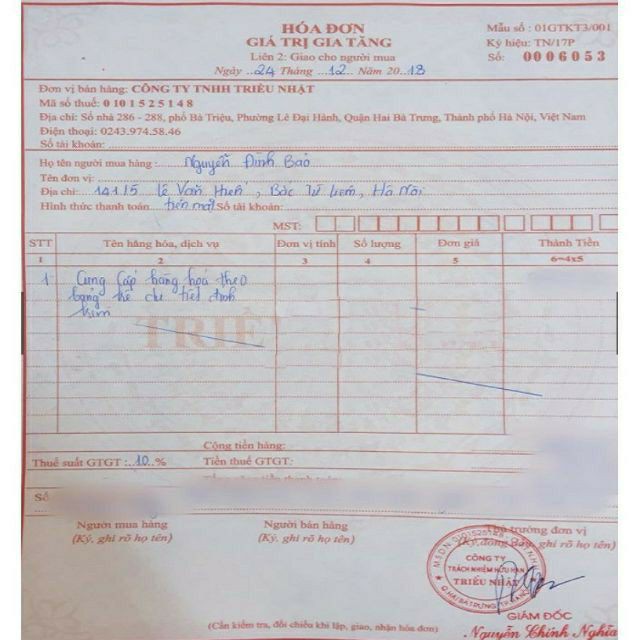 HÓA ĐƠN
GIÁ TRỊ GIA TĂNG
Liên 2: Giao cho người mua
Ngày ..24 Tháng ..12.. Năm 2018
Mẫu số : 01GTKT3/001
Ký hiệu: TN/17P
Số: 0006053
Đơn vị bán hàng: CÔNG TY TNHH TRIỀU NHẬT
Mã số thuế: 0101525148
Địa chỉ: Số nhà 286 - 288, phố Bà Triệu, Phường Lê Đại Hành, Quận Hai Bà Trưng, Thành phố Hà Nội, Việt Nam
Điện thoại: 0243.974.58.46
Số tài khoản:
Họ tên người mua hàng : Nguyễn Đình Bảo
Tên đơn vị:
Địa chỉ: 141.15 Lê Văn Hiến, Bắc Từ Liêm, Hà Nội
Hình thức thanh toán: tiền mặt Số tài khoản:
MST:
STT Tên hàng hóa, dịch vụ Đơn vị tính Số lượng Đơn giá Thành Tiền
1 2 3 4 5 6=4x5
1 Cung cấp hàng hoá theo
bảng kê chi tiết đính
kèm
Cộng tiền hàng:
Thuế suất GTGT :..10..% Tiền thuế GTGT:
Số
Người mua hàng Người bán hàng Thủ trưởng đơn vị
(Ký, ghi rõ họ tên) (Ký, ghi rõ họ tên)
M.S.D.N: 0101525148
CÔNG TY
TRÁCH NHIỆM HỮU HẠN
TRIỀU NHẬT
Q.HAI BÀ TRƯNG-TP.HÀ NỘI
GIÁM ĐỐC
(Cần kiểm tra, đối chiếu khi lập, giao, nhận hóa đơn) Nguyễn Chính Nghĩa